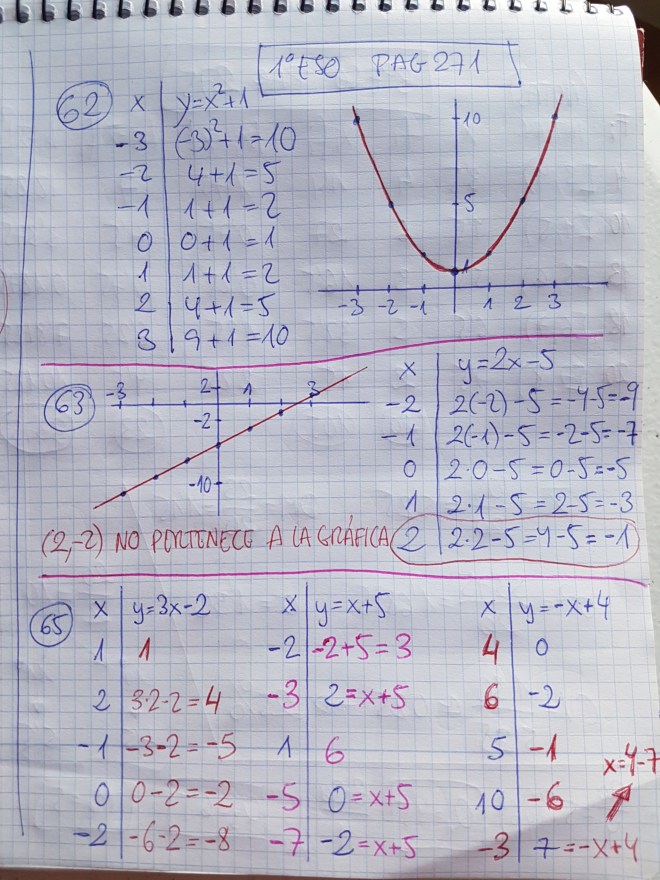 1º ESO PAG 271
62 x y=x²+1
-3 (-3)²+1=10
-2 4+1=5
-1 1+1=2
0 0+1=1
1 1+1=2
2 4+1=5
3 9+1=10
10
5
1
-3 -2 -1 1 2 3
63
-3 2 1 3
-2
-10
x y=2x-5
-2 2(-2)-5=-4-5=-9
-1 2(-1)-5=-2-5=-7
0 2·0-5=0-5=-5
1 2·1-5=2-5=-3
(2,-2) NO PERTENECE A LA GRÁFICA 2 2·2-5=4-5=-1
65 x y=3x-2 x y=x+5 x y=-x+4
1 1 -2 -2+5=3 4 0
2 3·2-2=4 -3 2=x+5 6 -2
-1 -3-2=-5 1 6 5 -1
x=4-7
0 0-2=-2 -5 0=x+5 10 -6
-2 -6-2=-8 -7 -2=x+5 -3 7=-x+4